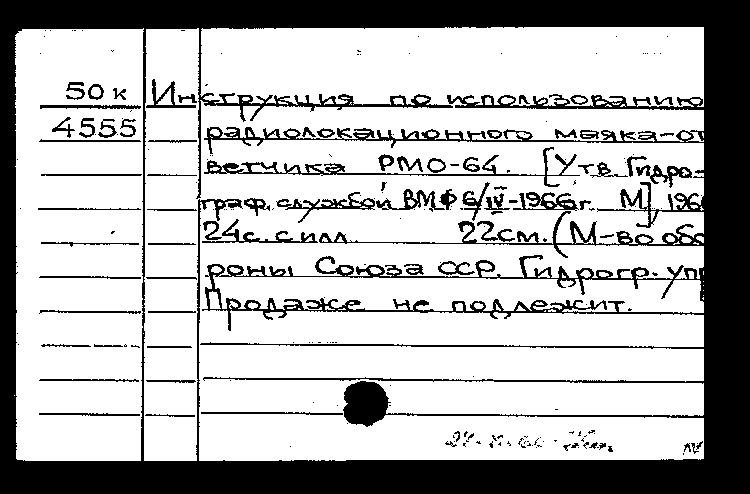 50к Инструкция по использованию
4555 радиолокационного маяка-от
ветчика РМО-64. [Утв. Гидро-
граф. службой ВМФ 6/IV-1966г. М], 196
24с. с илл. 22см. (М-во обо
роны Союза ССР. Гидрогр. упр
Продаже не подлежит.